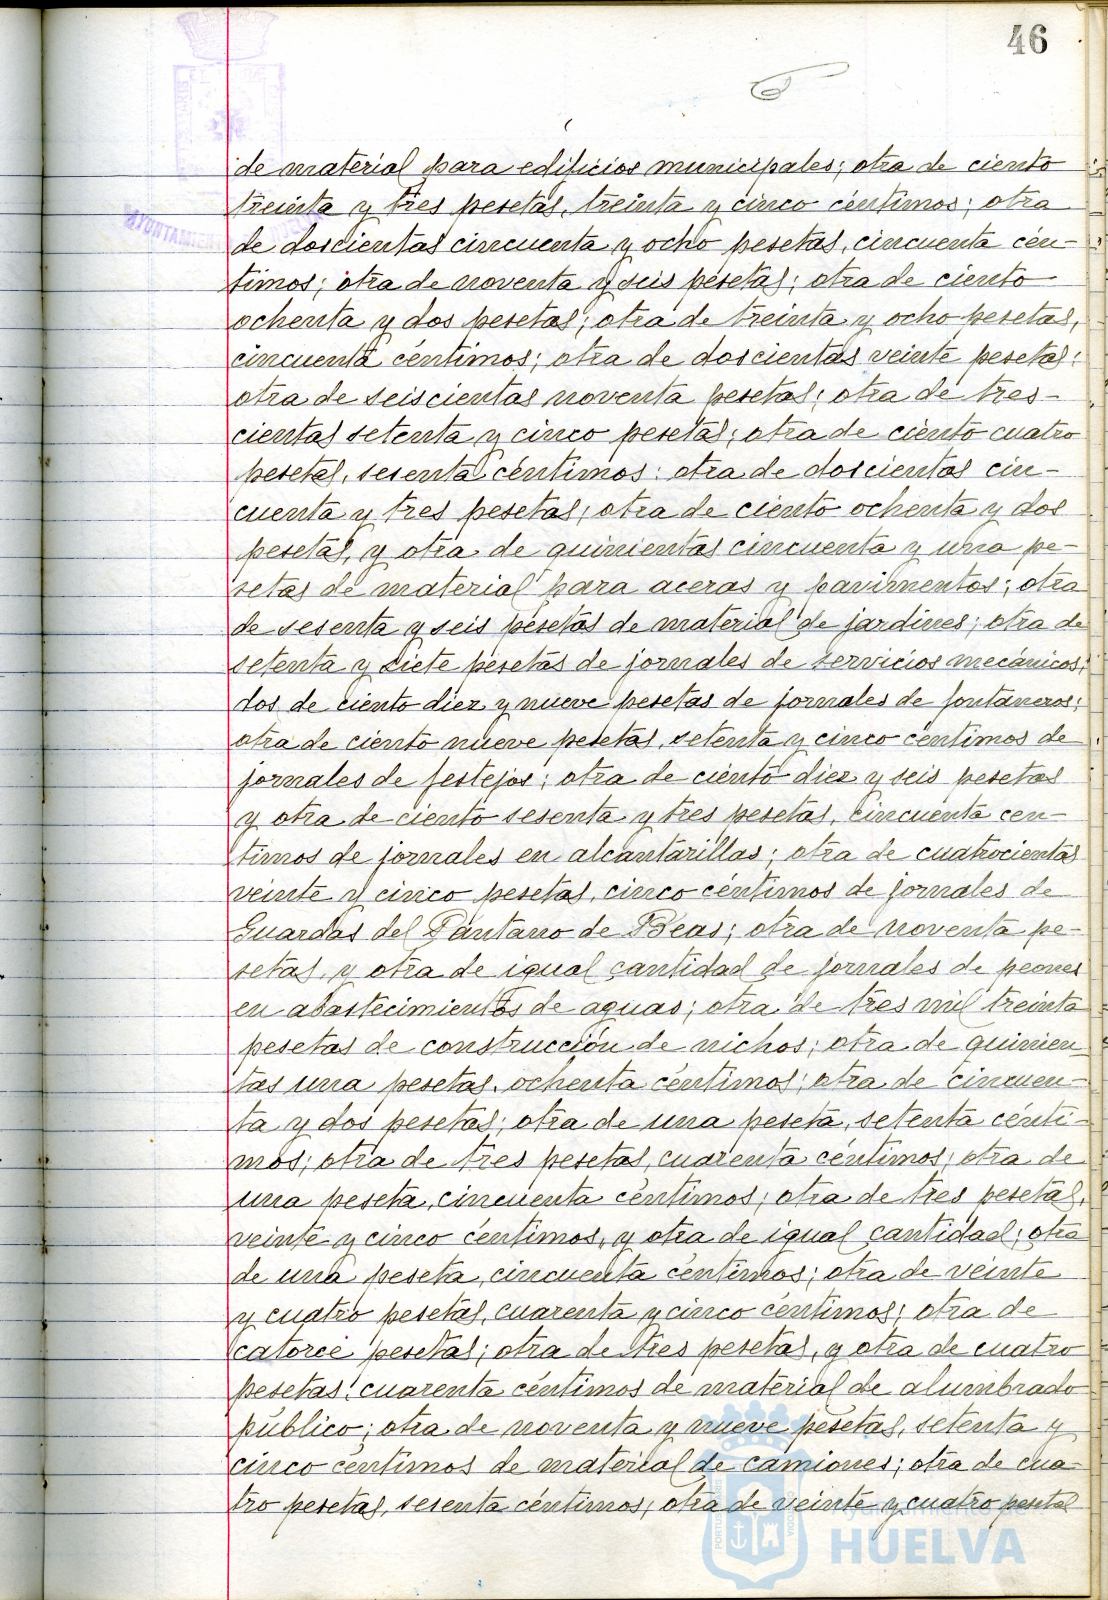 46
de material para edificios municipales; otra de ciento
treinta y tres pesetas, treinta y cinco céntimos; otra
de doscientas cincuenta y ocho pesetas, cincuenta cén-
timos; otra de noventa y seis pesetas; otra de ciento
ochenta y dos pesetas; otra de treinta y ocho pesetas,
cincuenta céntimos; otra de doscientas veinte pesetas;
otra de seiscientas noventa pesetas; otra de tres-
cientas setenta y cinco pesetas; otra de ciento cuatro
pesetas, sesenta céntimos; otra de doscientas cin-
cuenta y tres pesetas; otra de ciento ochenta y dos
pesetas, y otra de quinientas cincuenta y una pe-
setas de material para aceras y pavimentos; otra
de sesenta y seis pesetas de material de jardines; otra de
setenta y siete pesetas de jornales de servicios mecánicos;
dos de ciento diez y nueve pesetas de jornales de fontaneros;
otra de ciento nueve pesetas, setenta y cinco céntimos de
jornales de festejos; otra de ciento diez y seis pesetas
y otra de ciento sesenta y tres pesetas, cincuenta cén-
timos de jornales en alcantarillas; otra de cuatrocientas
veinte y cinco pesetas, cinco céntimos de jornales de
Guardas del Pantano de Beas; otra de noventa pe-
setas, y otra de igual cantidad de jornales de peones
en abastecimientos de aguas; otra de tres mil treinta
pesetas de construcción de nichos; otra de quinien
tas una pesetas, ochenta céntimos; otra de cincuen-
ta y dos pesetas; otra de una peseta, setenta cénti-
mos; otra de tres pesetas, cuarenta céntimos; otra de
una peseta, cincuenta céntimos; otra de tres pesetas,
veinte y cinco céntimos, y otra de igual cantidad; otra
de una peseta, cincuenta céntimos; otra de veinte
y cuatro pesetas, cuarenta y cinco céntimos; otra de
catorce pesetas; otra de tres pesetas, y otra de cuatro
pesetas, cuarenta céntimos de material de alumbrado
público; otra de noventa y nueve pesetas, setenta y
cinco céntimos de material de camiones; otra de cua-
tro pesetas, sesenta céntimos; otra de veinte y cuatro pesetas
Ayuntamiento de
HUELVA